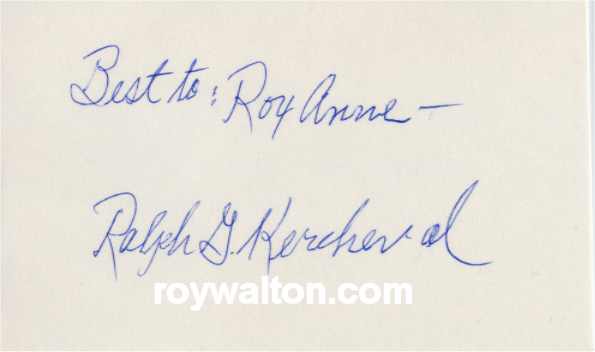 Best to: Roy Anne —
Ralph G. Kercheval
roywalton.com